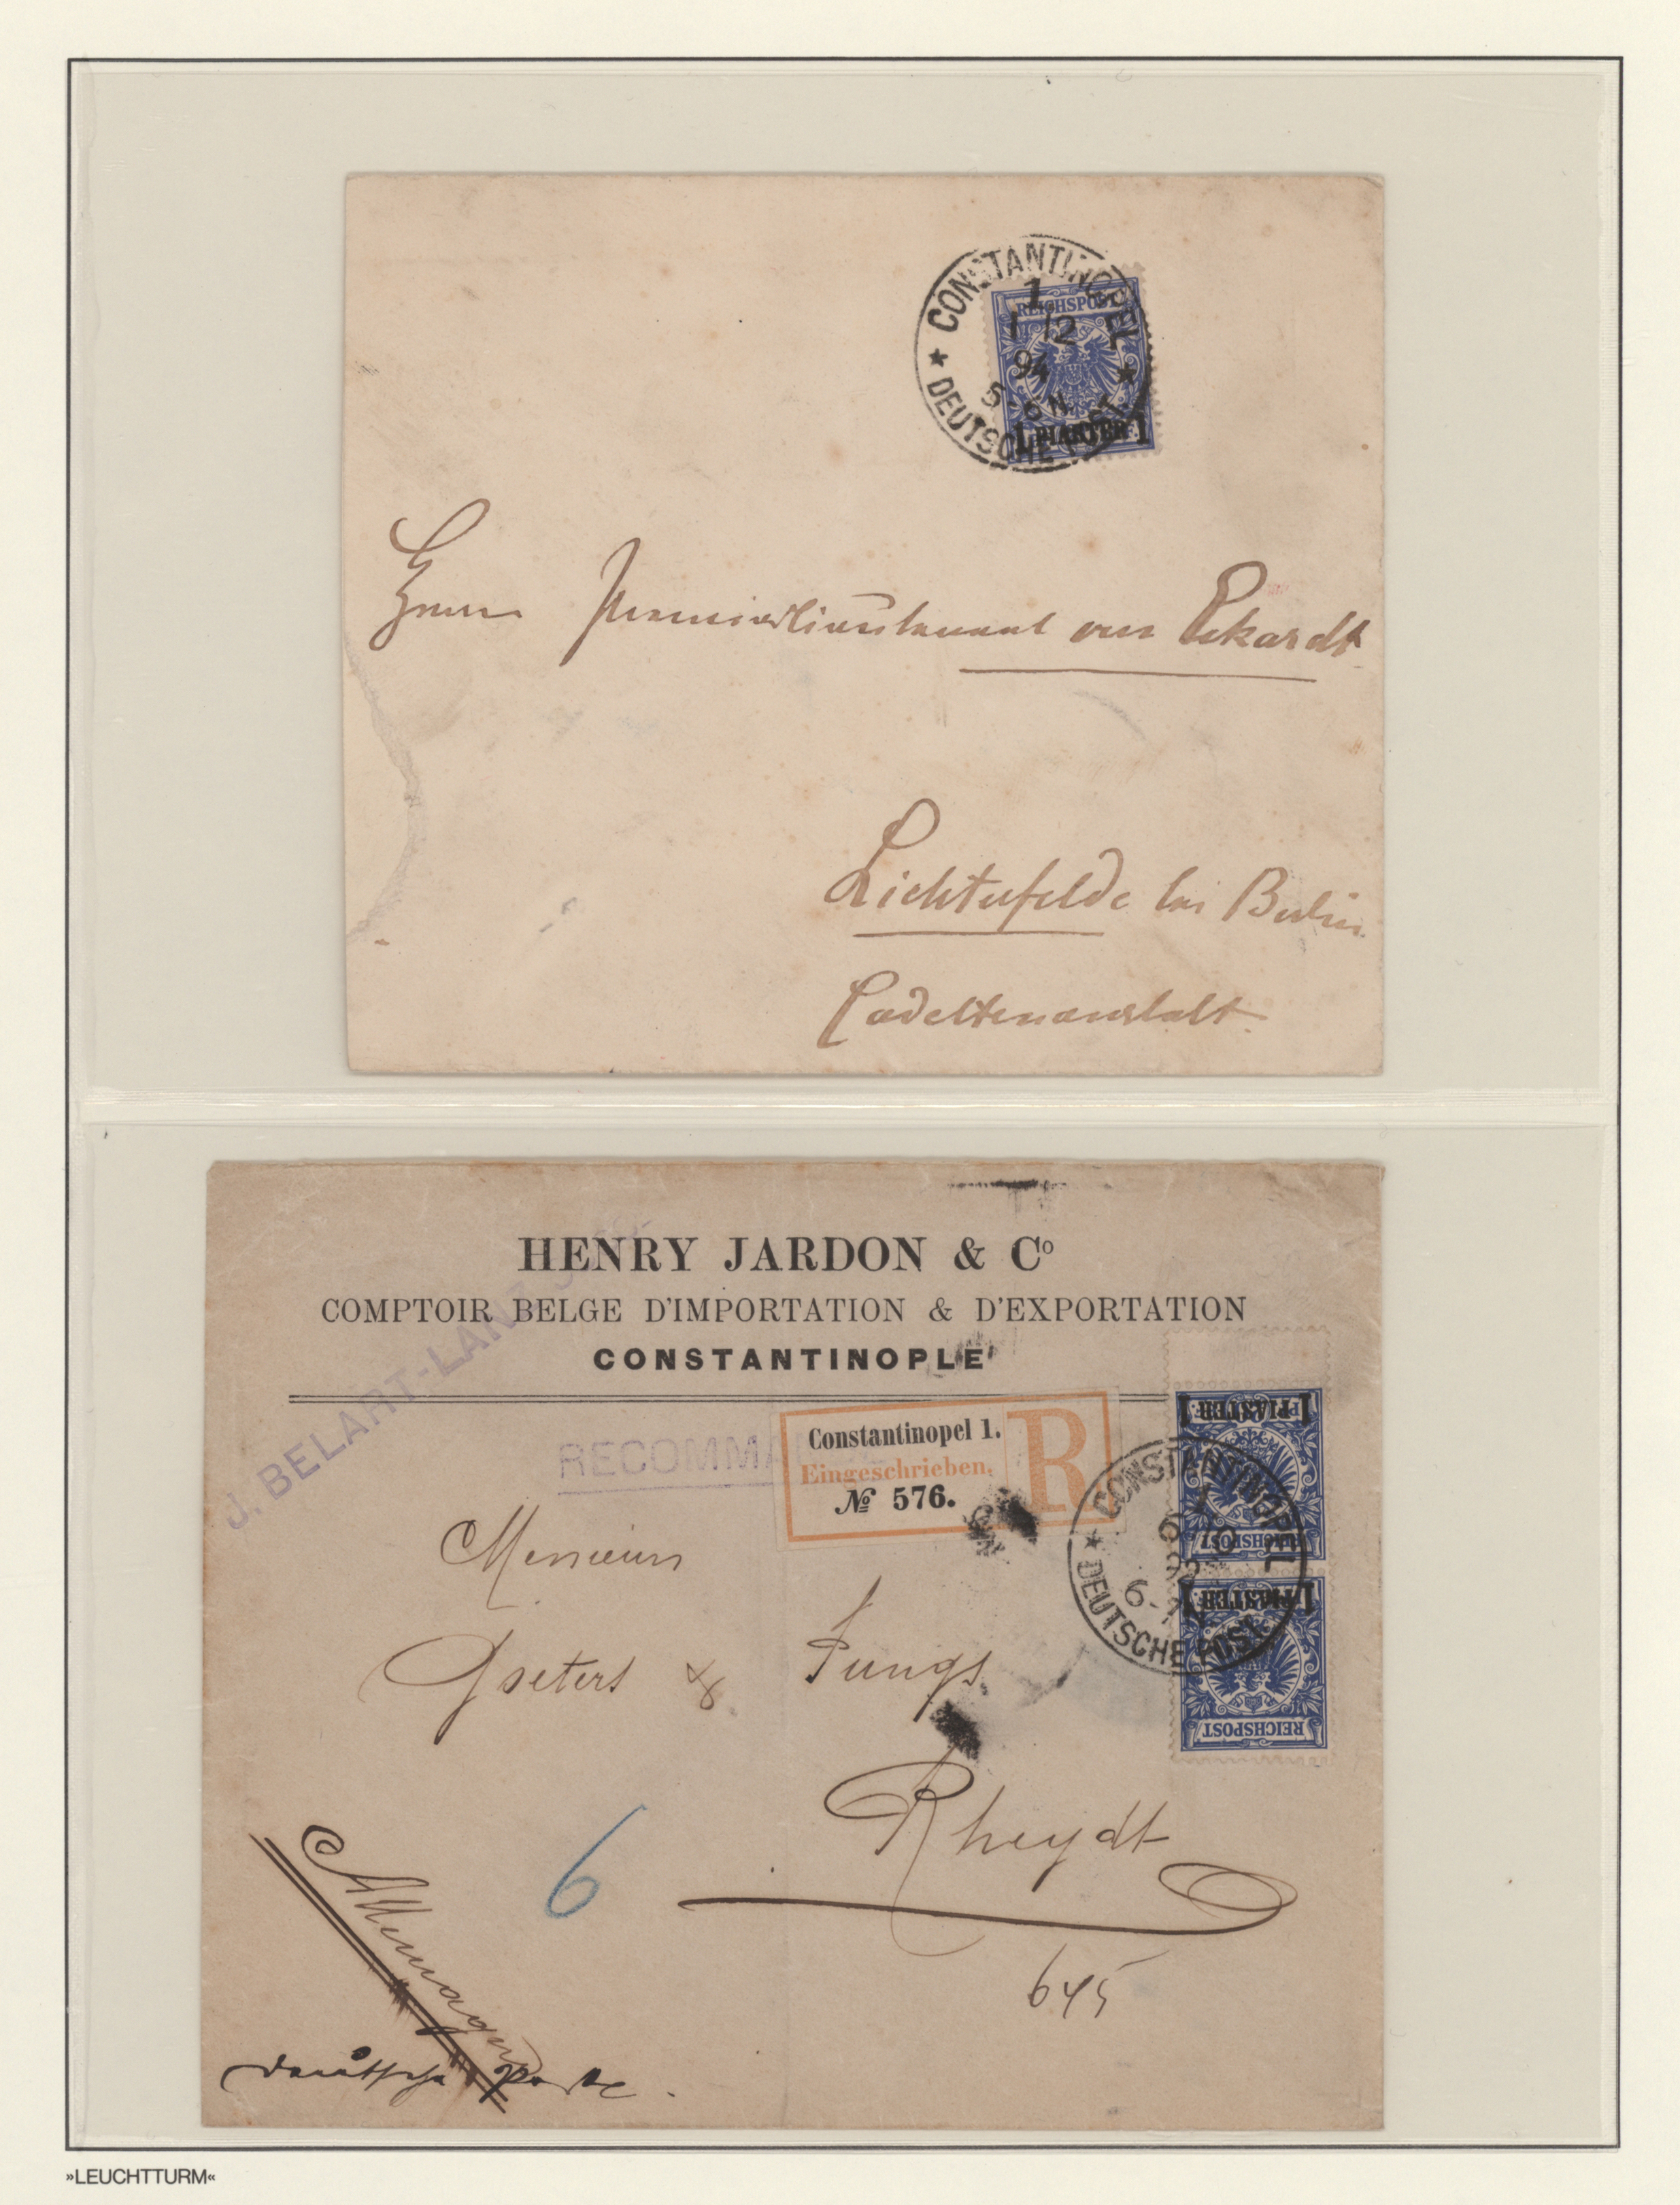 CONSTANTINOPEL
1
1 12
94
5-6 N.
DEUTSCHE POST
REICHSPOST
1 PIASTER 1
Herrn Premierlieutenant von Eckardt
Lichterfelde bei Berlin
Cadettenanstalt
HENRY JARDON & Cº
COMPTOIR BELGE D'IMPORTATION & D'EXPORTATION
CONSTANTINOPLE
J. BELART-LANZ
RECOMMA
Constantinopel 1.
Eingeschrieben.
№ 576.
R
1 PIASTER 1
REICHSPOST
CONSTANTINOPEL
DEUTSCHE POST
1 PIASTER 1
REICHSPOST
Messieurs
Goeters & Jungs
Rheydt
6
645
Allemagne
deutsche Poste.
»LEUCHTTURM«